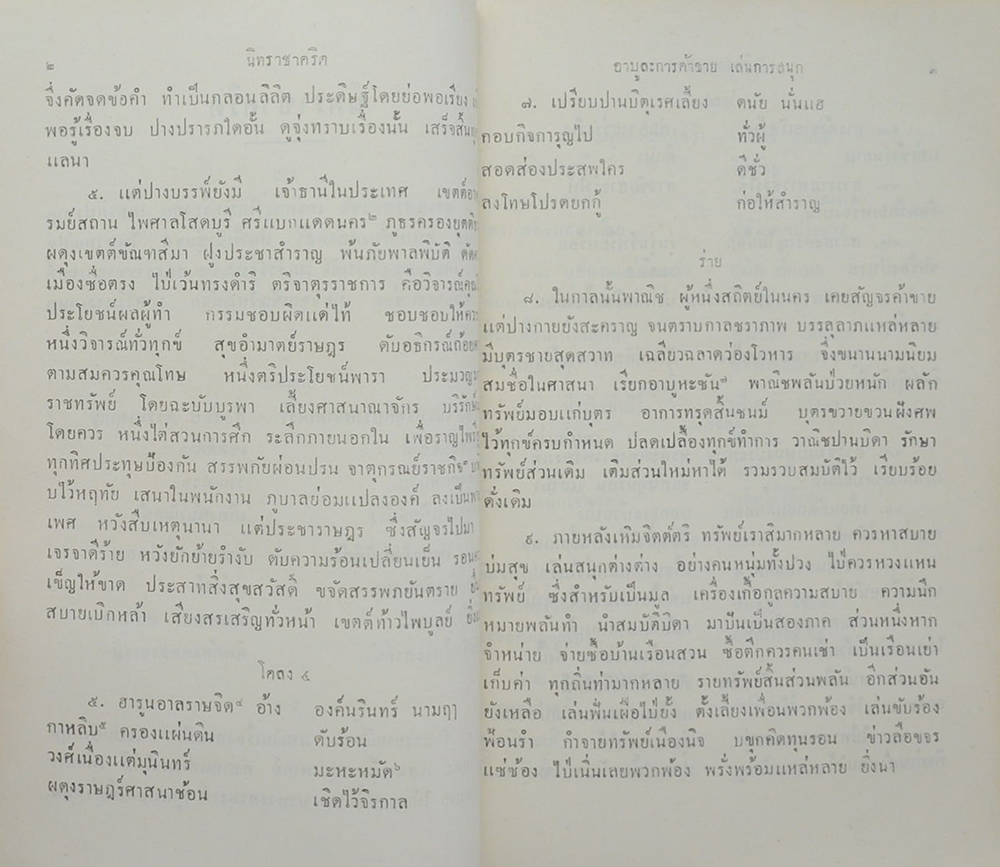 ๒
นิทราชาคริต
จึ่งคัดจดข้อคำ ทำเป็นกลอนลิลิต ประดิษฐ์โดยย่อพอเรียง
พอรู้เรื่องจบ ปางปรารภใดอั้น ดูจุ่งทราบเรื่องนั้น เสร็จสิ้น
แลนา
๕. แต่ปางบรรพ์ยังมี เจ้าธานีในประเทศ เขตต์
รมย์สถาน ไพศาลโสดบูรี ศรีแบกแดดนคร๒ ภูธรครอง
ผดุงเขตต์ขัณฑสีมา ฝูงประชาสำราญ พ้นภัยพาลพิบัติ
เมืองซื่อตรง ไป่เว้นทรงดำริ ตริจาตุรราชการ คือวิจารณ์
ประโยชน์ผลผู้ทำ กรรมชอบผิดแด่ไท้ ชอบชอบให้
หนึ่งวิจารณ์ทั่วทุกข์ สุขอำมาตย์ราษฎร ดับอธิกรณ์
ตามสมควรคุณโทษ หนึ่งตริประโยชน์พารา
ราชทรัพย์ โดยฉะบับบูรพา เลี้ยงศาสนาณาจักร
โดยควร หนึ่งไต่สวนการศึก ระลึกภายนอกใน
ทุกทิศประทุษป้องกัน สรรพภัยผ่อนปรน จาตุกรณย์ราชกิจ
บไว้หฤทัย เสนาในพนักงาน ภูบาลย่อมแปลงองค์ ลงเป็น
เพศ หวังสืบเหตุนานา แต่ประชาราษฎร ซึ่งสัญจรไปมา
เจรจาดีร้าย หวังยักย้ายรำงับ ดับความร้อนเปลี่ยนเย็น
เข็ญให้ขาด ประสาทสิ่งสุขสวัสดิ์ ขจัดสรรพภยันตราย
สบายเบิกหล้า เสียงสรเสริญทั่วหน้า เขตต์ท้าวไพบูลย์
โคลง ๔
๕. ฮารูนอาลราษจิต๔ อ้าง องค์นรินทร์ นามฤๅ
กาหลิบ๕ ครองแผ่นดิน ดับร้อน
วงศ์เนื่องแต่มุนินทร์ มะหะหมัด๖
ผดุงราษฎร์ศาสนาช้อน เชิดไว้จิรกาล
อาบูละการค้าขาย เล่นการสนุก
๓
๗. เปรียบปานบิตุเรศเลี้ยง ดนัย นั่นแฮ
กอบกิจการุญไป ทั่วผู้
สอดส่องประสพใคร ดีชั่ว
ลงโทษโปรดยกกู้ ก่อให้สำราญ
ร่าย
๘. ในกาลนั้นพาณิช ผู้หนึ่งสถิตย์ในนคร เคยสัญจรค้าขาย
แต่ปางกายยังสะคราญ จนตราบกาลชราภาพ บรรลุลาภแหล่หลาย
มีบุตรชายสุดสวาท เฉลียวฉลาดว่องโวหาร จึ่งขนานนามนิยม
สมชื่อในศาสนา เรียกอาบูหะซัน๗ พาณิชพลันป่วยหนัก ผลัก
ทรัพย์มอบแก่บุตร อาการทรุดสิ้นชนม์ บุตรขวายขวนฝังศพ
ไว้ทุกข์ครบกำหนด ปลดเปลื้องทุกข์ทำการ วาณิชปานบิดา รักษา
ทรัพย์ส่วนเดิม เติมส่วนใหม่หาได้ รวมรวบสมบัติไว้ เรียบร้อย
ดั่งเดิม
๙. ภายหลังเหิมจิตต์ตริ ทรัพย์เราสิมากหลาย ควรหาสบาย
บ่มสุข เล่นสนุกต่างต่าง อย่างคนหนุ่มทั้งปวง ไป่ควรหวงแหน
ทรัพย์ ซึ่งสำหรับเป็นมูล เครื่องเกื้อกูลความสบาย ความนึก
หมายพลันทำ นำสมบัติบิดา มาปันเป็นสองภาค ส่วนหนึ่งหาก
จำหน่าย จ่ายซื้อบ้านเรือนสวน ซื้อตึกควรคนเช่า เป็นเรือนเย่า
เก็บค่า ทุกถิ่นท่ามากหลาย รายทรัพย์สิ้นส่วนพลัน อีกส่วนอัน
ยังเหลือ เล่นฟั่นเฝือไป่ยั้ง ตั้งเลี้ยงเพื่อนพวกพ้อง เล่นขับร้อง
ฟ้อนรำ กำจายทรัพย์เนืองนิจ บขุกคิดทุนรอน ข่าวลือขจร
แซ่ซ้อง ไป่เนิ่นเลยพวกพ้อง พรั่งพร้อมแหล่หลาย ยิ่งนา